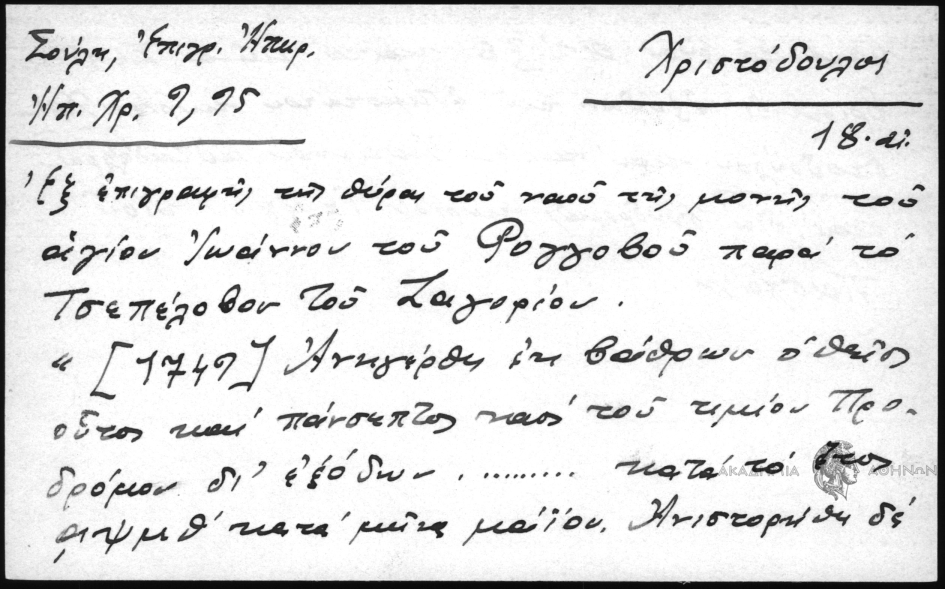 Σούλη, Ἐπιγρ. Ἠπειρ.
Χριστόδουλος
Ἠπ. Χρ. 9, 95
18. αἰ.
Ἐξ ἐπιγραφῆς τῆς θύρας τοῦ ναοῦ τῆς μονῆς τοῦ
ἁγίου Ἰωάννου τοῦ Ρογγοβοῦ παρά τό
Τσεπέλοβον τοῦ Ζαγορίου.
" [1749] Ἀνηγέρθη ἐκ βάθρων ὁ θεῖος
οὗτος καί πάνσεπτος ναός τοῦ τιμίου Προ-
δρόμου δι' ἐξόδων ......... κατά τό ἔτος
͵αψμθ' κατά μῆνα μάϊον. Ἀνιστορήθη δέ
ΑΚΑΔΗΜΙΑ ΑΘΗΝΩΝ